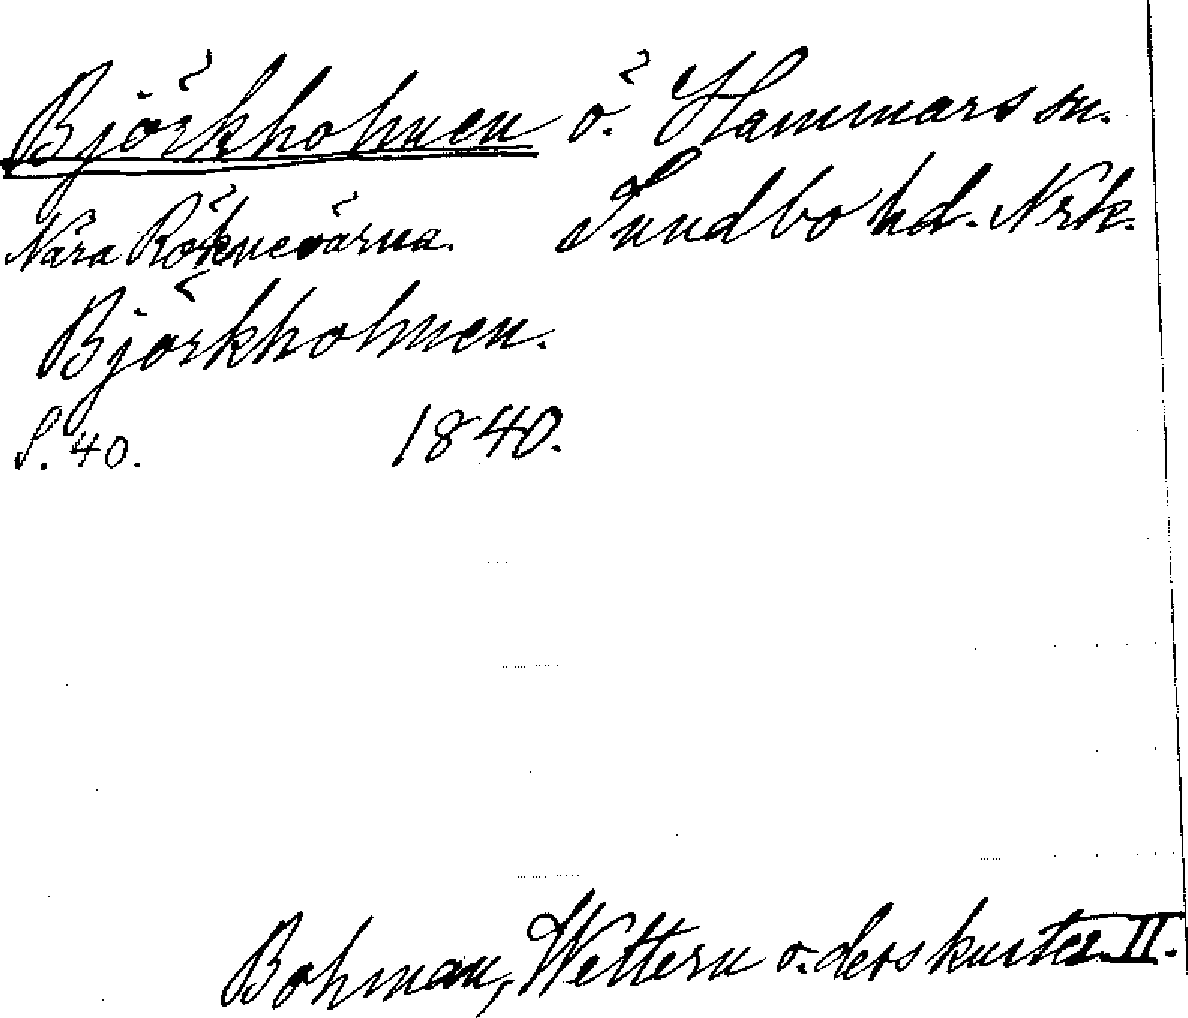 Björkholmen ö. Hammars sn.
Nära Röknevärna. Sundbo hd. Nrk.
Björkholmen.
S. 40. 1840.
Bohman, Wettern o. dess kuster. II.